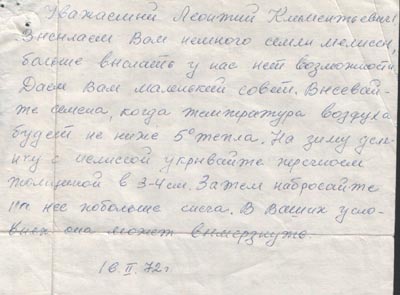 Уважаемый Леонтий Климентьевич!
Высылаем Вам немного семян мелиссы,
больше выслать у нас нет возможности.
Даем Вам маленький совет. Высевай-
те семена, когда температура воздуха
будет не ниже 5° тепла. На зиму делян-
ку с мелиссой укрывайте перегноем
толщиной в 3-4 см. Затем набросайте
на нее побольше снега. В Ваших усло-
виях она может вымерзнуть.
16.II.72г